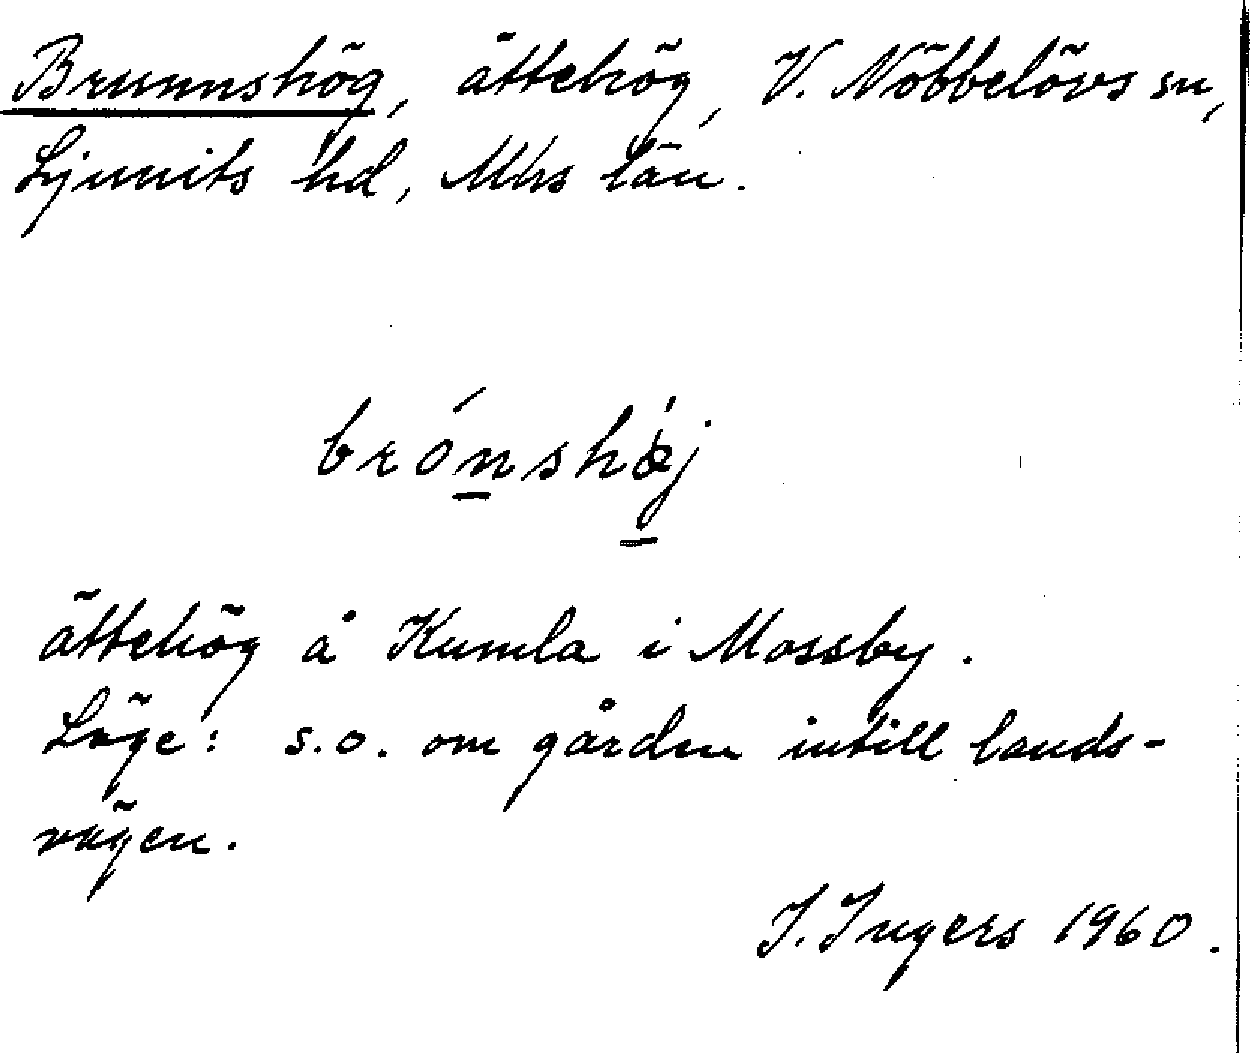 Brunnshög, ättehög, V. Nöbbelövs sn,
Ljunits hd, Mhs län.
brónshǿj
ättehög å Kumla i Mossby.
Läge: s.o. om gården intill lands-
vägen.
I. Ingers 1960.